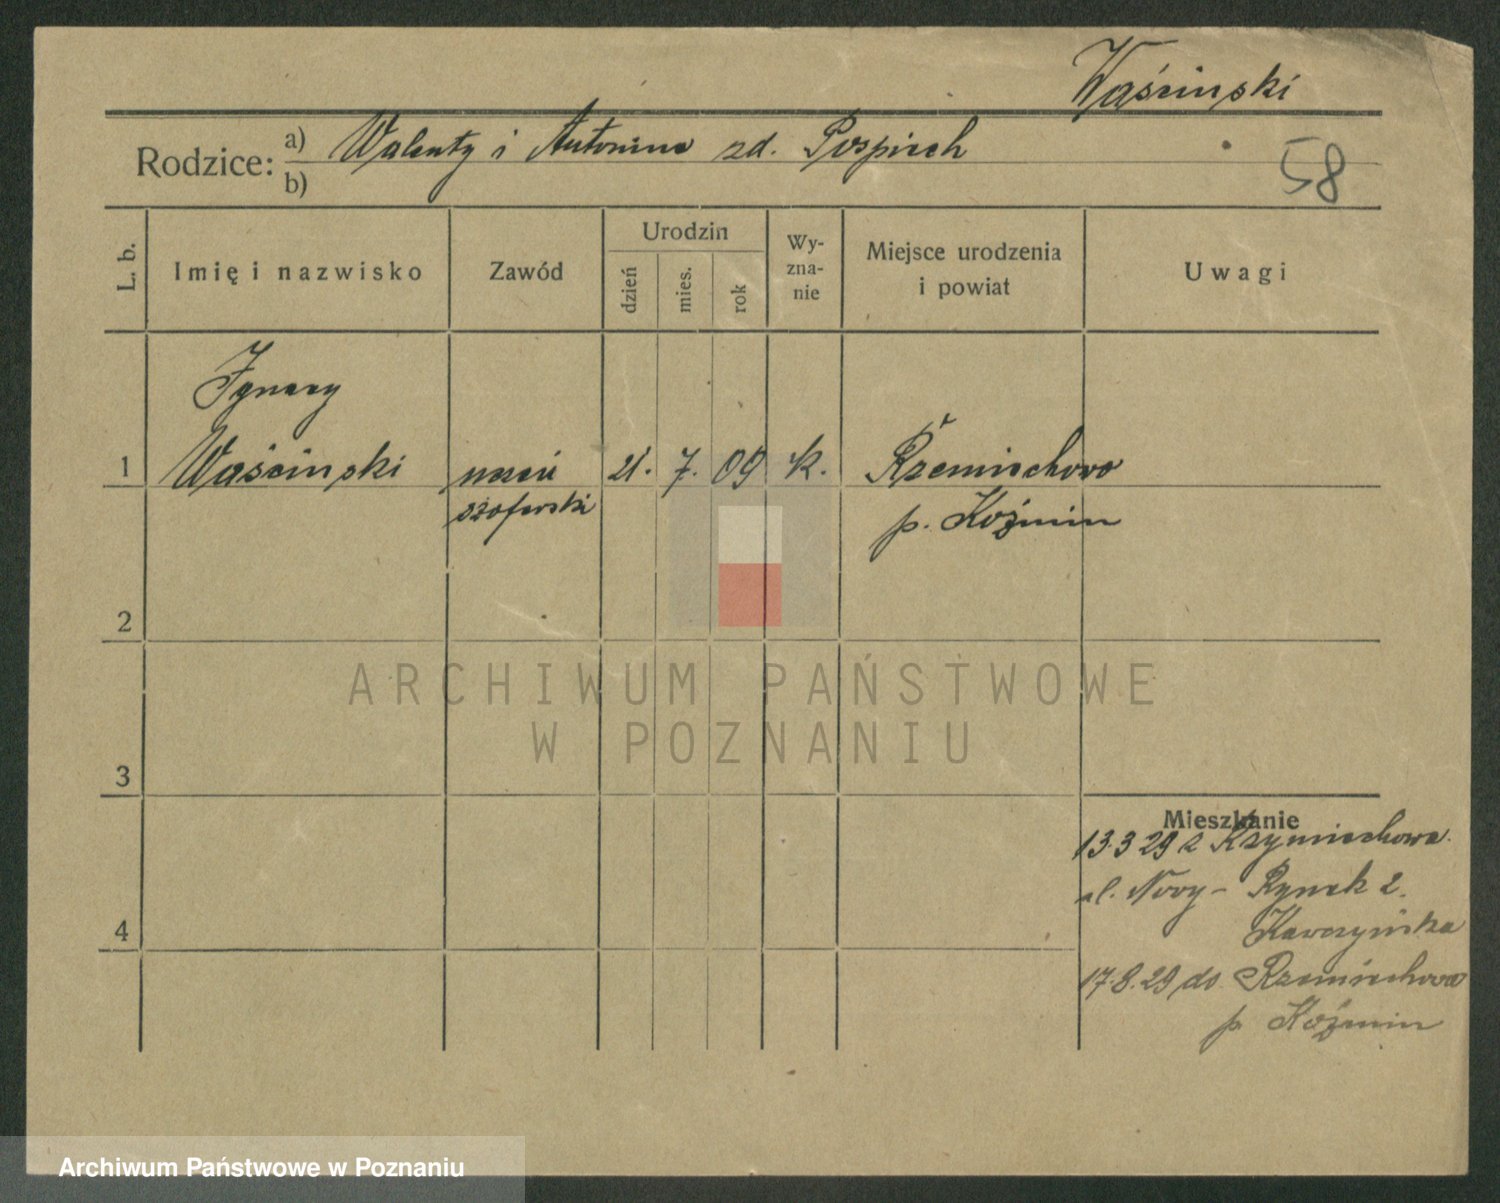 Waścinski
Rodzice: a) Walenty i Antonina zd. Pospiech
b)
58
L. b.
Imię i nazwisko
Zawód
Urodzin
dzień
mies.
rok
Wy-
zna-
nie
Miejsce urodzenia
i powiat
Uwagi
Ignacy
1 Waścinski uczeń 21. 7. 09 k. Rzemiechowo
szoferski p. Koźmin
2
ARCHIWUM PAŃSTWOWE
W POZNANIU
3
Mieszkanie
13.3 29 z Rzymiechowa
ul. Nowy-Rynek 2.
4
Kawczyńska
17.8.29 do Rzemiechowa
p Koźmin
Archiwum Państwowe w Poznaniu